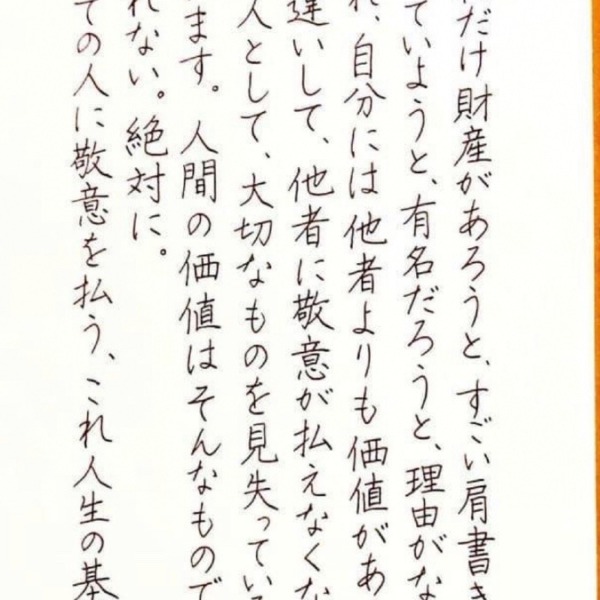 だけ財産があろうと、すごい肩書き
ていようと、有名だろうと、理由がな
れ、自分には他者よりも価値があ
違いして、他者に敬意が払えなくな
人として、大切なものを見失っている
ます。人間の価値はそんなもので
れない。絶対に。
ての人に敬意を払う、これ人生の基